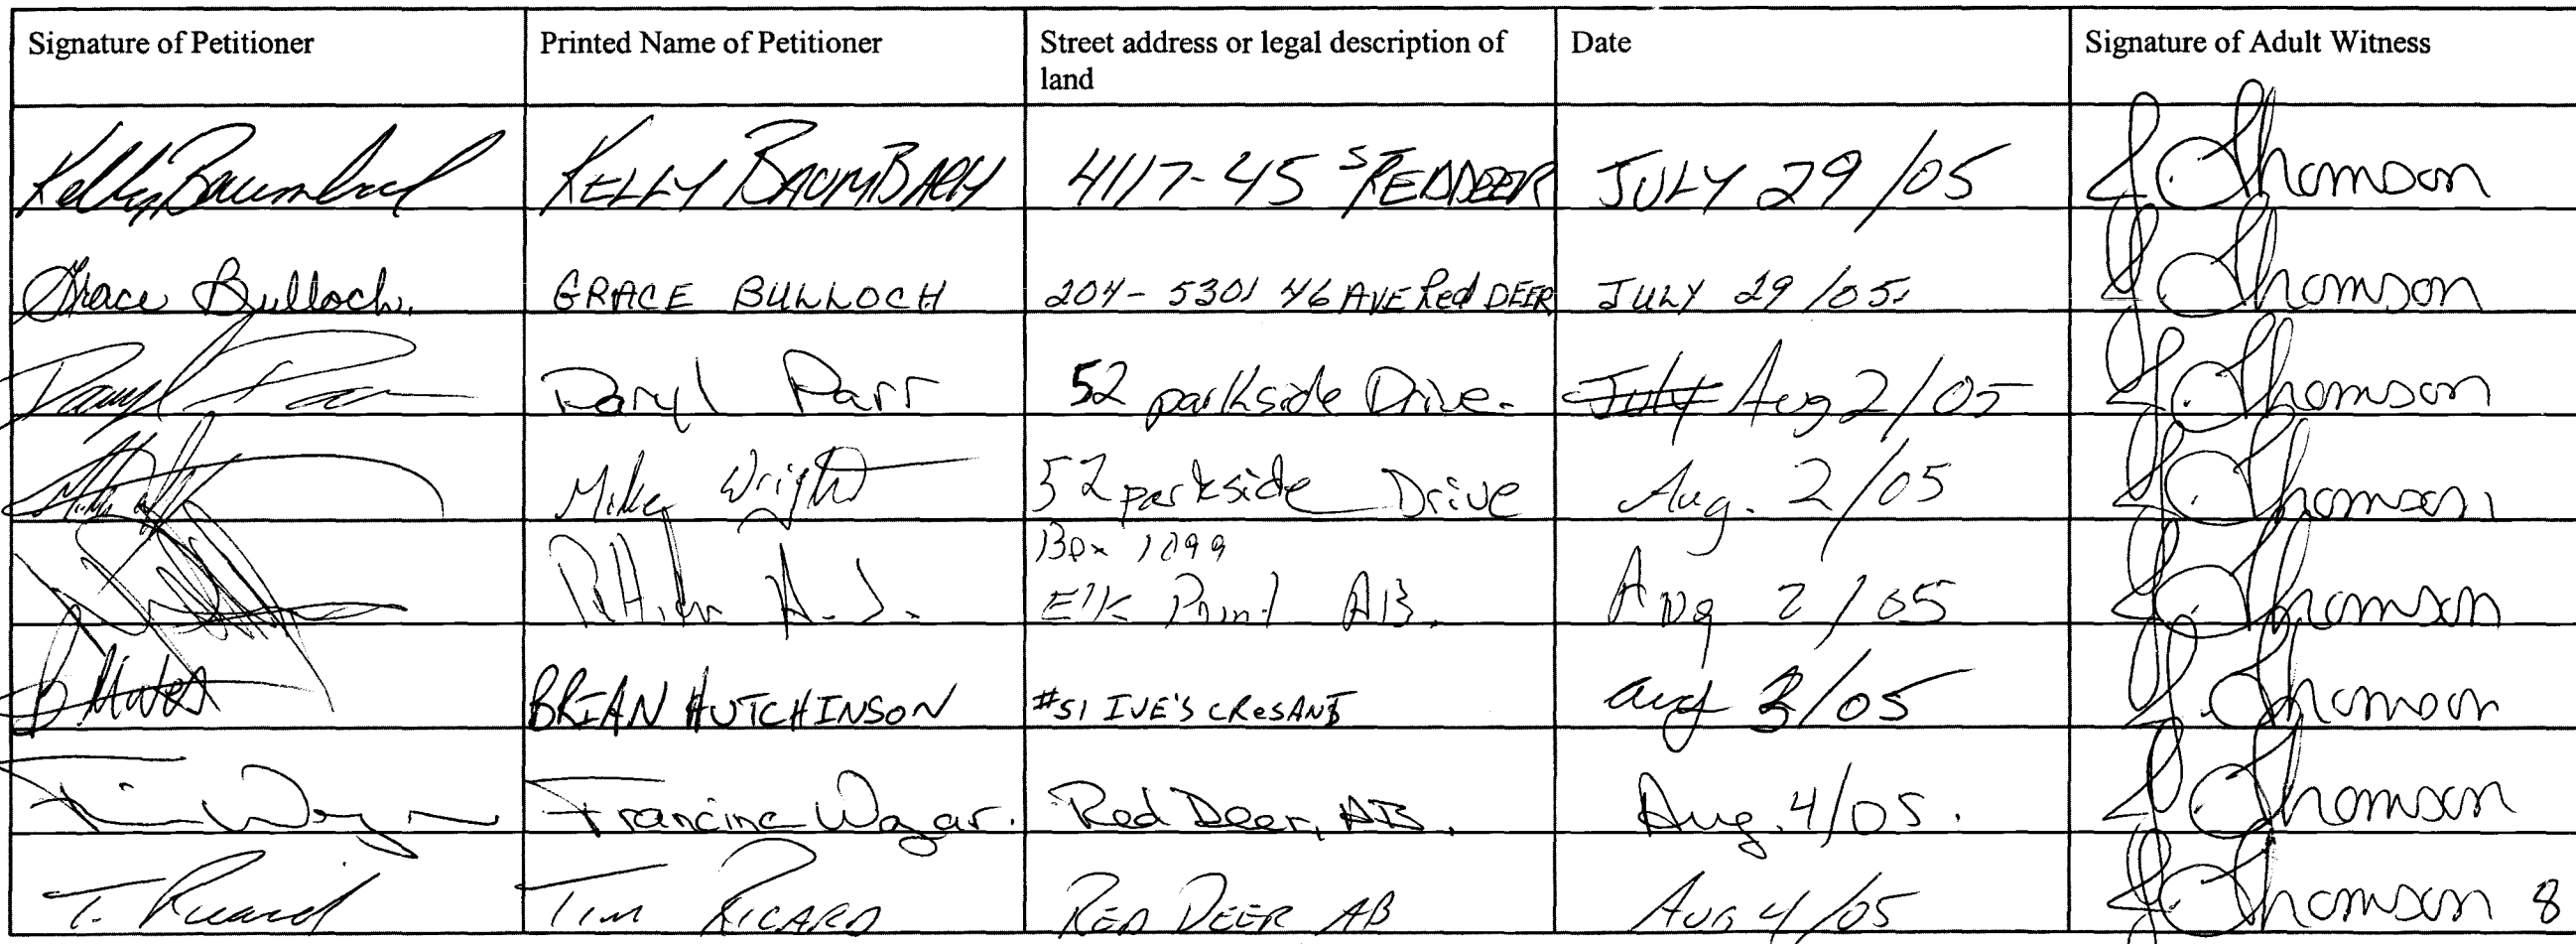 Signature of Petitioner Printed Name of Petitioner Street address or legal description of land Date Signature of Adult Witness
Kelly Baumbach KELLY BAUMBACH 4117-45 ST RED DEER JULY 29/05 J. Thomson
Grace Bulloch. GRACE BULLOCH 204-5301 46 AVE Red DEER JULY 29/05. J Thomson
Daryl Parr Daryl Parr 52 parkside Drive. July Aug 2/05 J. Thomson
Mike Wright 52 parkside Drive Aug. 2/05 J. Thomson
Box 1099
A.J. Elk Point AB. Aug 2/05 J. Thomson
BRIAN HUTCHINSON #51 IVE'S CRESANT Aug 3/05 J. Thomson
Francine Wagar. Red Deer, AB. Aug. 4/05. J Thomson
T. Ricard TIM RICARD RED DEER AB AUG 4/05 J Thomson 8